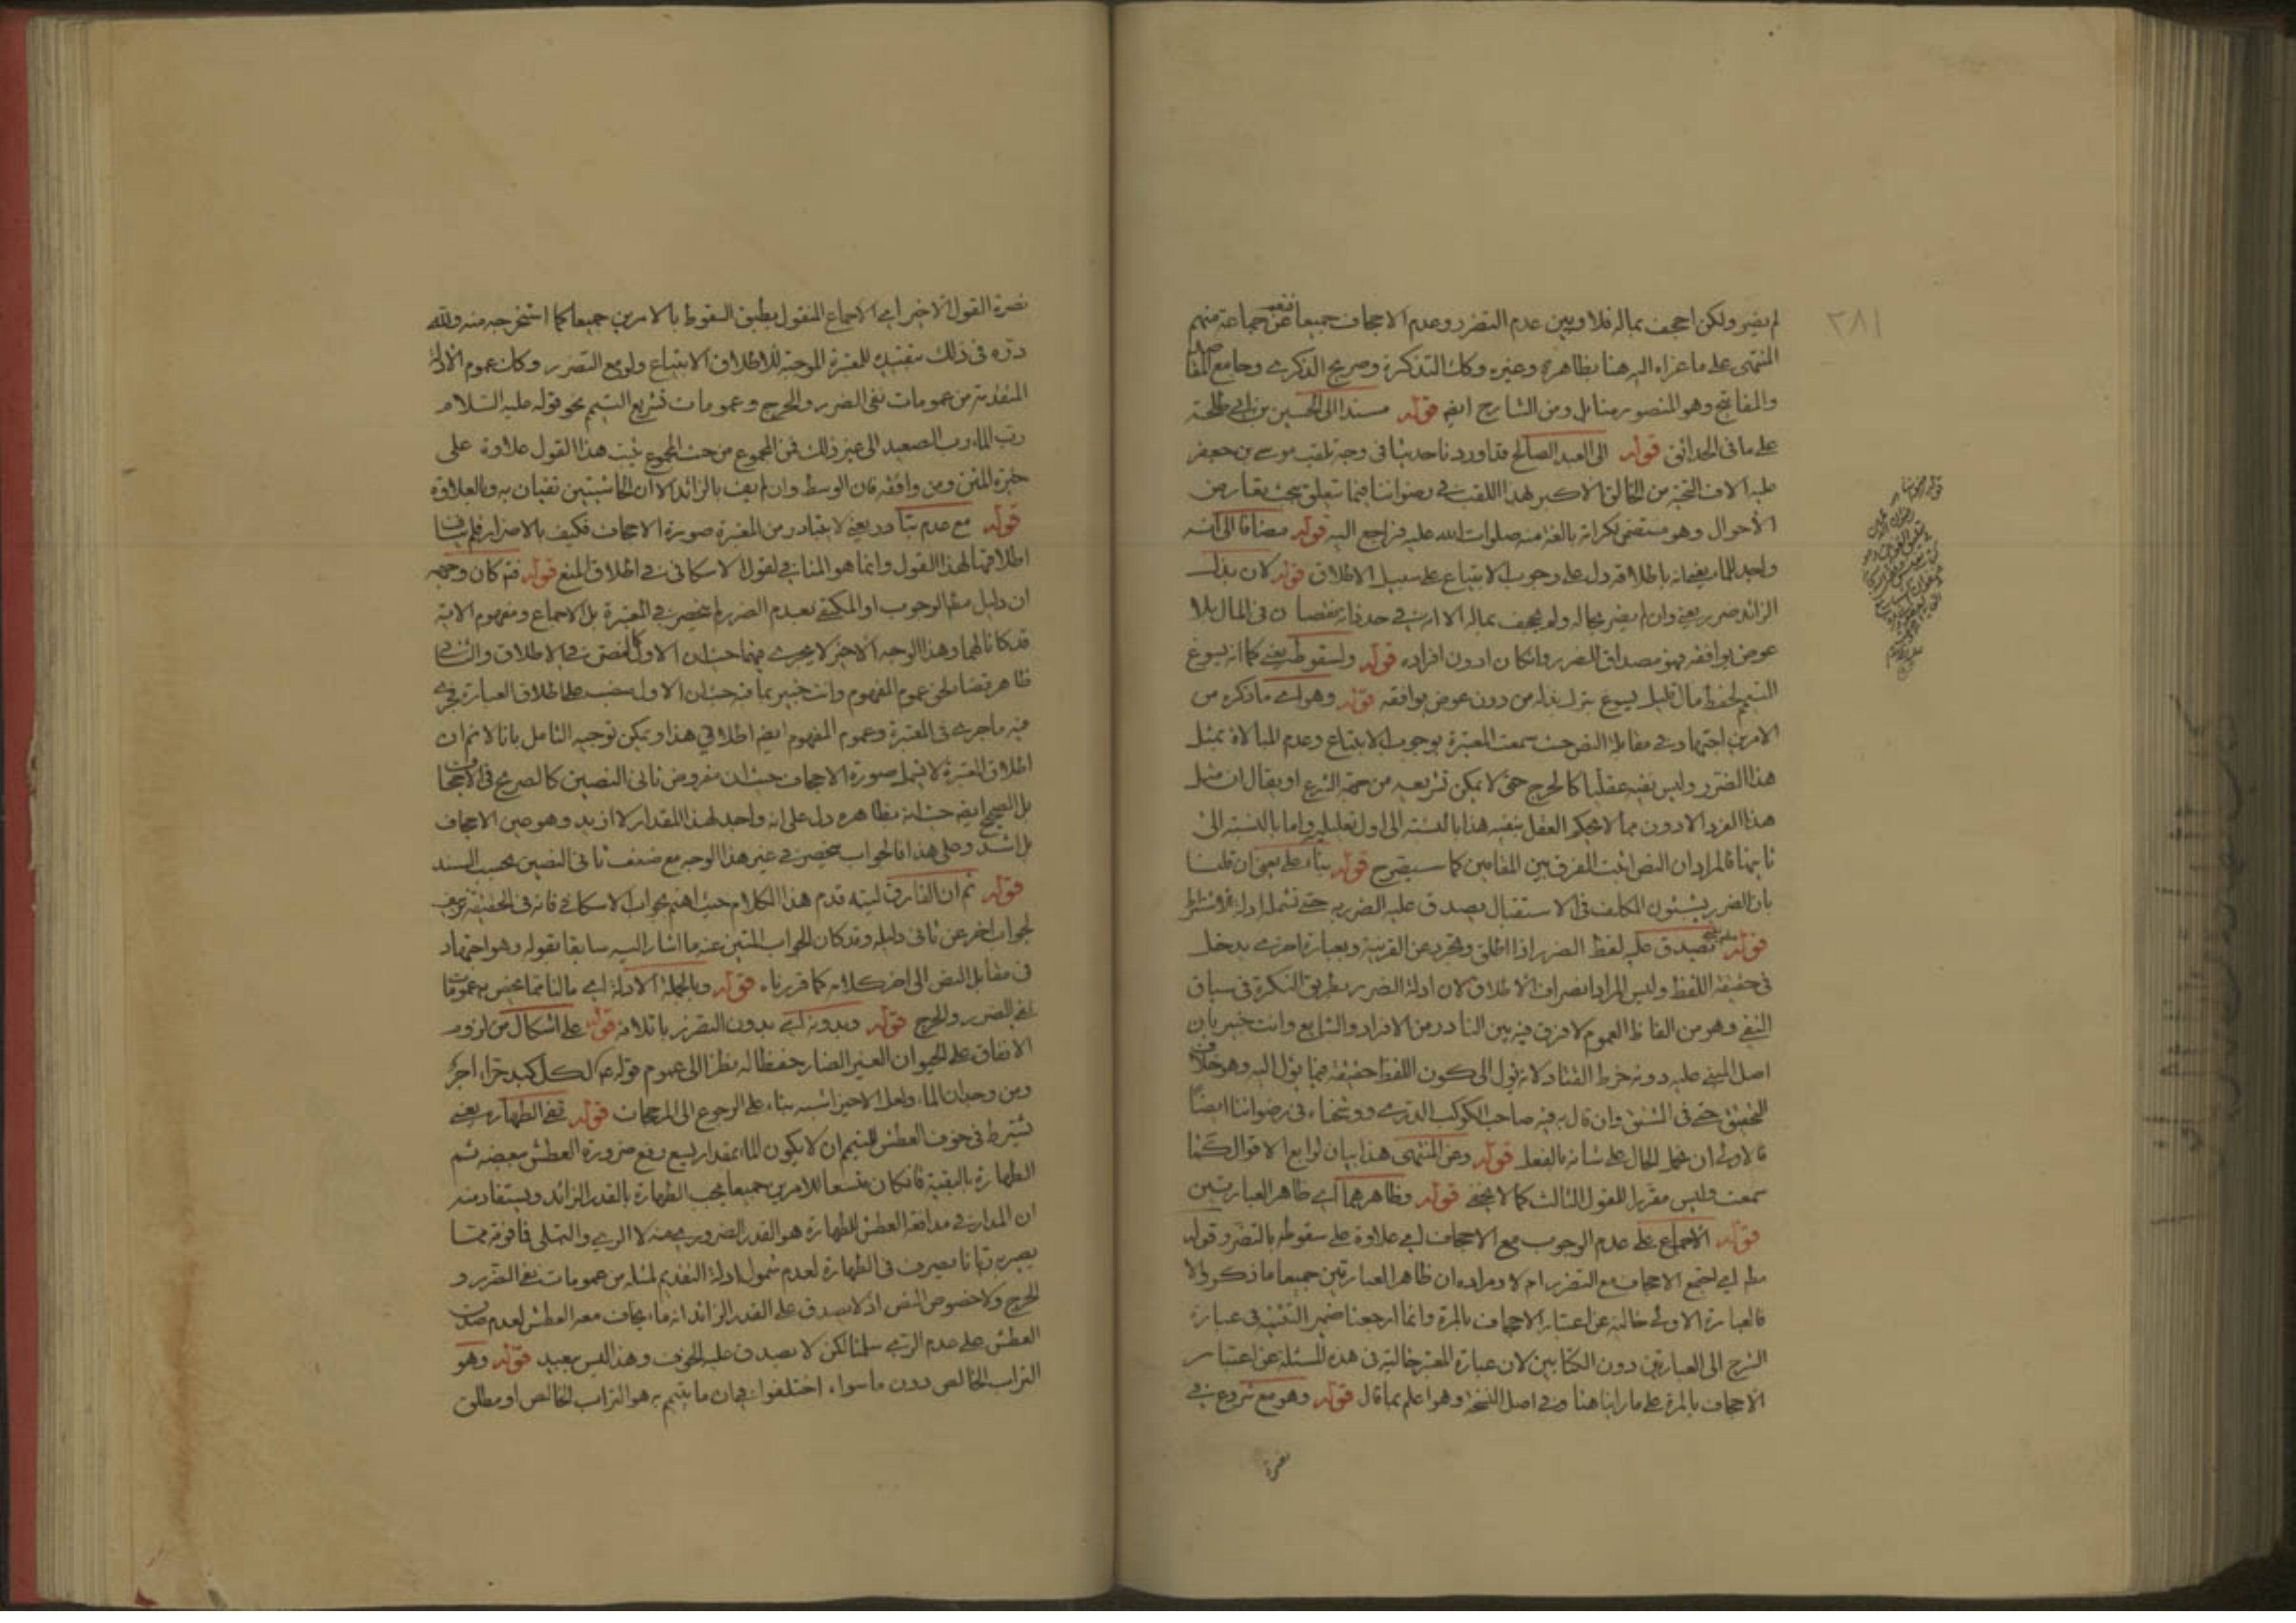 لم يضر ولكن اجحف بماله فلا وبين عدم التضرر وعدم الاجحاف جميعا فنعم عن جماعة منهم
المنتهى على ما عزاه اليه هنا بظاهره وغيره وكك التذكرة وصريح الذكرى وجامع المقاصد
والمفاتيح وهو المنصور منا بل ومن الشارح ايضا قوله مسندا الى الحسين بن ابى طلحة
على ما فى الحدائق قوله الى العبد الصالح قد اوردنا حديثا فى وجه تلقب موسى بن جعفر
عليه الاف التحية من الخالق الاكبر بهذا اللقب فى رضواننا فيما يتعلق ببحث تعارض
الأحوال وهو مستقصى لكرامة بالغة منه صلوات الله عليه فراجع اليه قوله مضافا الى انه
واجد للماء يعنى انه باطلاقه دل على وجوب الابتياع على سبيل الاطلاق قوله لان بذل
الزائد ضرر يعنى وان لم يضر بحاله ولم يجحف بماله الا انه فى حد ذاته نقصان فى المال بلا
عوض يوافقه فهو مصداق الضرر وان كان ادون افراده قوله ولسقوط يعنى كما انه يسوغ
التيمم لحفظ مال قليل يسوغ بترك بذله من دون عوض يوافقه قوله وهو اى ما ذكره من
الامرين اجتهاد فى مقابلة النص حيث سمعت المعتبرة بوجوب الابتياع وعدم المبالاة بمثل
هذا الضرر وليس نفيه عقليا كالحرج حتى لا يمكن تشريعه من جهة الشرع او يقال ان مثل
هذا الفرد الادون مما لا يحكم العقل بنفيه هذا بالنسبة الى اول تعليليه واما بالنسبة الى
ثانيهما فالمراد ان النص اثبت الفرق بين المقامين كما سيصرح قوله بناء على يعنى ان قلنا
بان الضرر بشئون المكلف فى الاستقبال يصدق عليه الضرر حتى تشمله ادلة
قوله تصدق عليه لفظ الضرر اذا اطلق وتجرد عن القرينة وبعبارة اخرى يدخل
فى حقيقة اللفظ وليس المراد انصراف الاطلاق لان ادلة الضرر بطريق النكرة فى سياق
النفى وهو من الفاظ العموم لا فرق فيه بين النادر من الافراد والشايع وانت خبير بان
اصل المبنى عليه دونه خرط القتاد لانه يئول الى كون اللفظ حقيقة فيما يئول اليه وهو خلاف
التحقيق حتى فى المشتق وان قال به فيه صاحب الكوكب الدرى ووشحناه فى رضواننا ايضا
فالاولى ان يحمل الحال على شانه بالفعل قوله وعن المنتهى هذا بيان لرابع الاقوال كما
سمعت وليس مقررا للقول الثالث كما لا يخفى قوله وظاهرهما اى ظاهر العبارتين
قوله الاجماع على عدم الوجوب مع الاجحاف اى علاوة على سقوطه بالتضرر وقوله
مطم اى اجتمع الاجحاف مع التضرر ام لا ومراده ان ظاهر العبارتين جميعا ما ذكر والا
فالعبارة الاولى خالية عن اعتبار الاجحاف بالمرة وانما ارجعنا ضمير التثنية فى عبارة
الشرح الى العبارتين دون الكتابين لان عبارة المعتبر خالية فى هذه المسئلة عن اعتبار
الاجحاف بالمرة على ما راينا هنا وفى اصل النسخة وهو اعلم بما قال قوله وهو مع شروع فى
نصرة
٢٨١
نصرة القول الأخير اى الاجماع المنقول يطبق السقوط بالامرين جميعا كما استخرجه منه ولله
دره فى ذلك بتقييده للمعتبرة الموجبة للاطلاق الابتياع ولو مع التضرر وكان عموم الادلة
المتقدمة من عمومات نفى الضرر والحرج وعمومات تشريع التيمم نحو قوله عليه السلام
رب الماء رب الصعيد الى غير ذلك فمن المجموع من حيث المجموع يثبت هذا القول علاوة على
خيرة المتن ومن وافقه فان الوسط وان لم يف بالزائد الا ان الحاشيتين تفيان به وبالعلاوة
قوله مع عدم تبادر يعنى لا يتبادر من المعتبرة صورة الاجحاف فكيف بالاضرار فلم يناف
اطلاقها لهذا القول وانما هو المنافى لقول الاسكافى فى اطلاق المنع قوله فتم كان وجهه
ان دليل مطم الوجوب او المكتفى بعدم الضرر لم ينحصر فى المعتبرة بل الاجماع ومفهوم الاية
قد كانا لهما وهذا الوجه الاخير لا يجرى فيهما حيث ان الاول كالنص فى الاطلاق والثانى
ظاهر قضاء لحق عموم المفهوم وانت خبير بما فيه حيث ان الاول على اطلاق العبارة فيجرى
فيه ما جرى فى المعتبرة وعموم المفهوم ايضا اطلاقى هذا ويمكن توجيه التامل بانا لا نم ان
اطلاق المعتبرة لا يشمل صورة الاجحاف حيث ان مفروض ثانى النصين كالصريح فى الاجحاف
بل الصحيح ايضا حيث انه بظاهره دل على انه واجد لهذا المقدار لا ازيد وهو عين الاجحاف
بل اشد وعلى هذا فالجواب ينحصر فى غير هذا الوجه مع ضعف ثانى النصين بحسب السند
قوله ثم ان الفارق ليته قدم هذا الكلام حيث اهتم بجواب الاسكافى فانه فى الحقيقة
لجواب اخر عن ثانى دليله وقد كان الجواب المتين عنه ما اشار اليه سابقا بقوله وهو اجتهاد
فى مقابل النص الى اخر كلامه كما قررناه قوله وبالجملة الادلة اى ما لنا مما يختص به عمومات
نفى الضرر والحرج قوله وبدونه اى بدون التضرر باتلافه قوله على اشكال من لزوم
الانفاق على الحيوان الغير الضار حفظا له نظرا الى عموم قوله ع لكل كبد حراء اجر
ومن وجدان الماء ولعل الاخير اشبه بناء على الرجوع الى المرجحات قوله ففى الطهارة يعنى
يشترط فى خوف العطش للتيمم ان لا يكون الماء بمقدار يسع رفع ضرورة العطش ببعضه ثم
الطهارة بالبقية فان كان متسعا للامرين جميعا يجب الطهارة بالقدر الزائد ويستفاد منه
ان المدار فى مدافعة العطش للطهارة هو القدر الضرورى منه لا الرى والتملى فما فوقه مما
يصير به ريانا يصرف فى الطهارة لعدم شمول ادلة التقديم لمثله من عمومات نفى الضرر و
الحرج ولا خصوص النص اذ لا يصدق على القدر الزائد انه ماء يخاف معه العطش لعدم صدق
العطش على عدم الرى سلمنا لكن لا يصدق عليه الخوف وهذا ليس ببعيد قوله وهو
التراب الخالص دون ما سواه اختلفوا فى ان ما يتيمم به هو التراب الخالص او مطلق